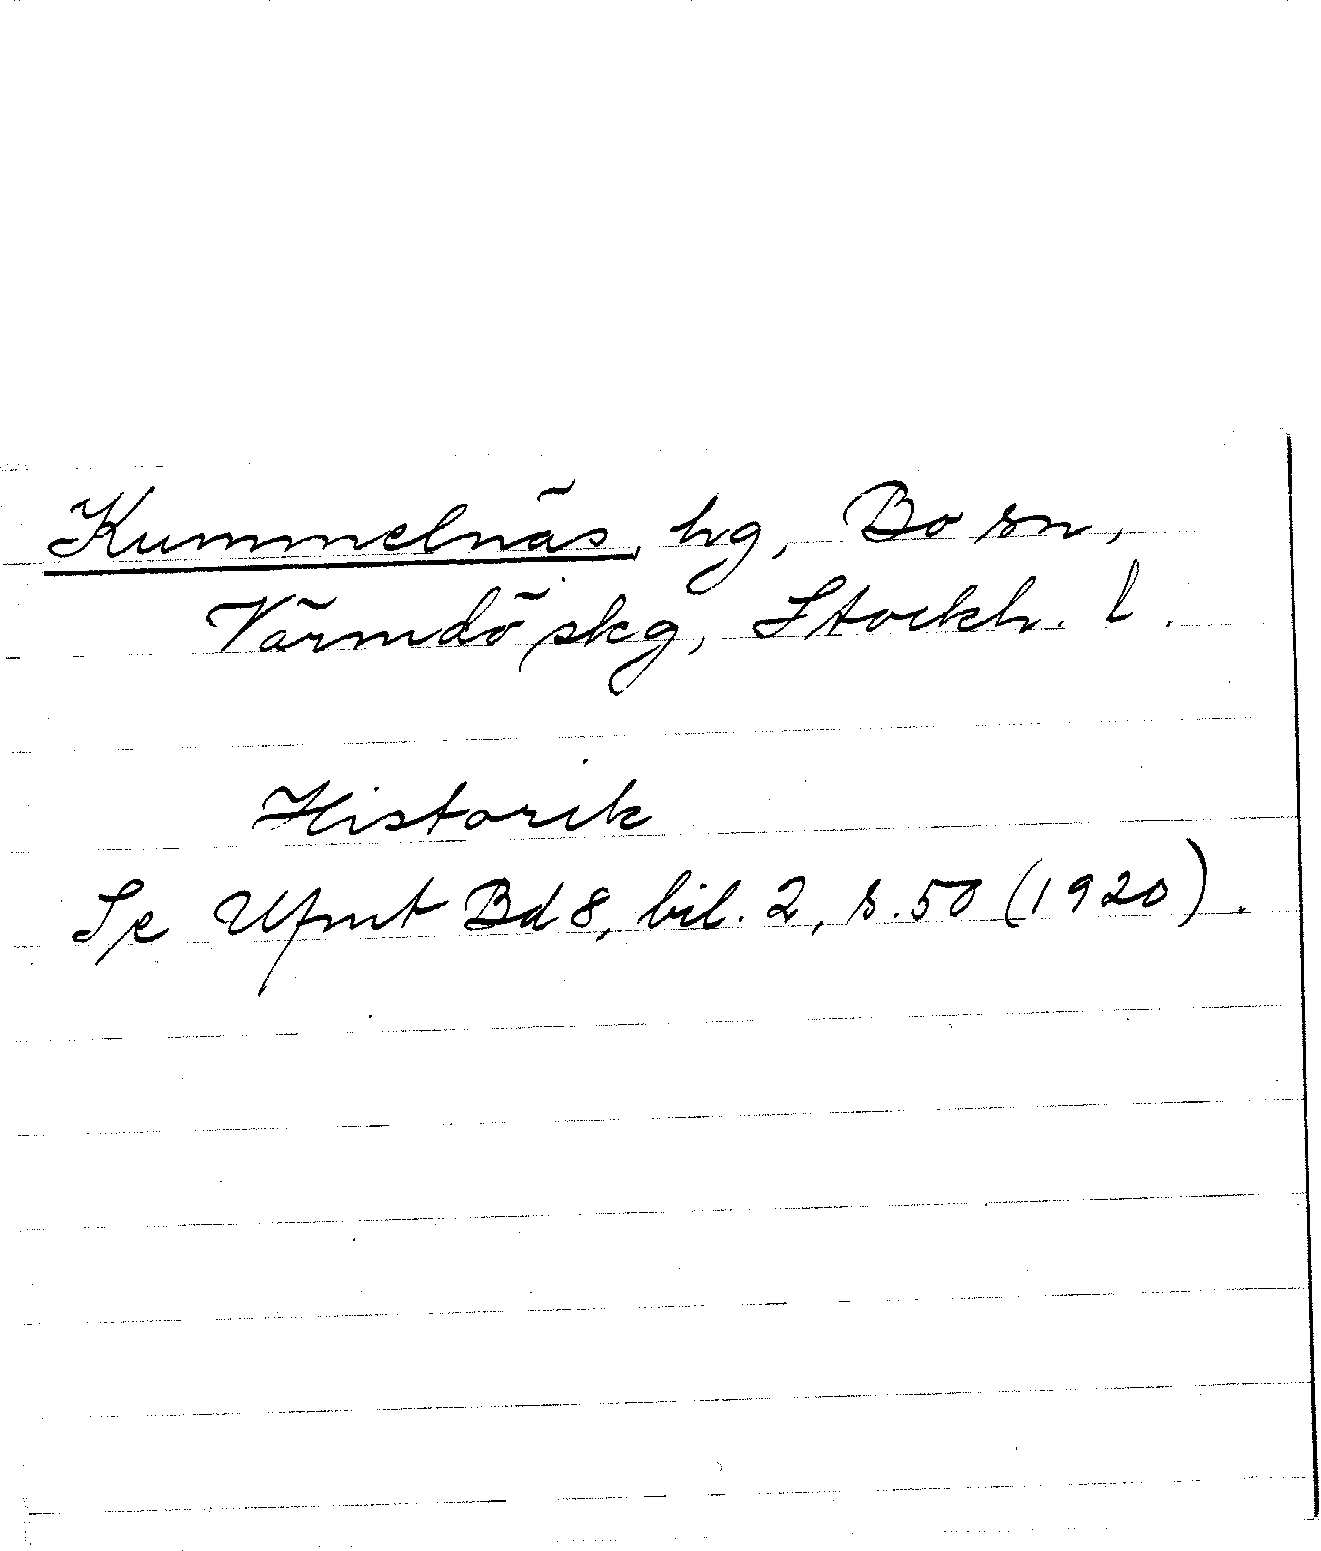 Kummelnäs, hg, Bo sn,
Värmdö skg, Stockh. l.
Historik
Se Ufmt Bd 8, bil. 2, s. 50 (1920).